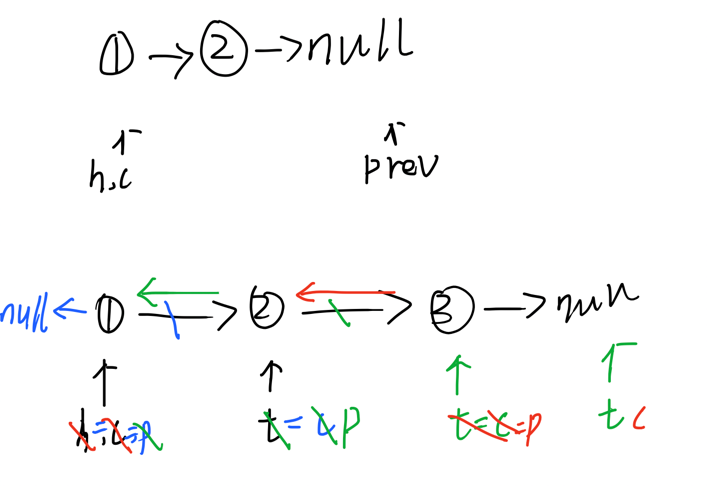 ① → ② → null
h,c prev
null ← ① → ② → ③ → null
h,c=p t=cp t=c=p t c